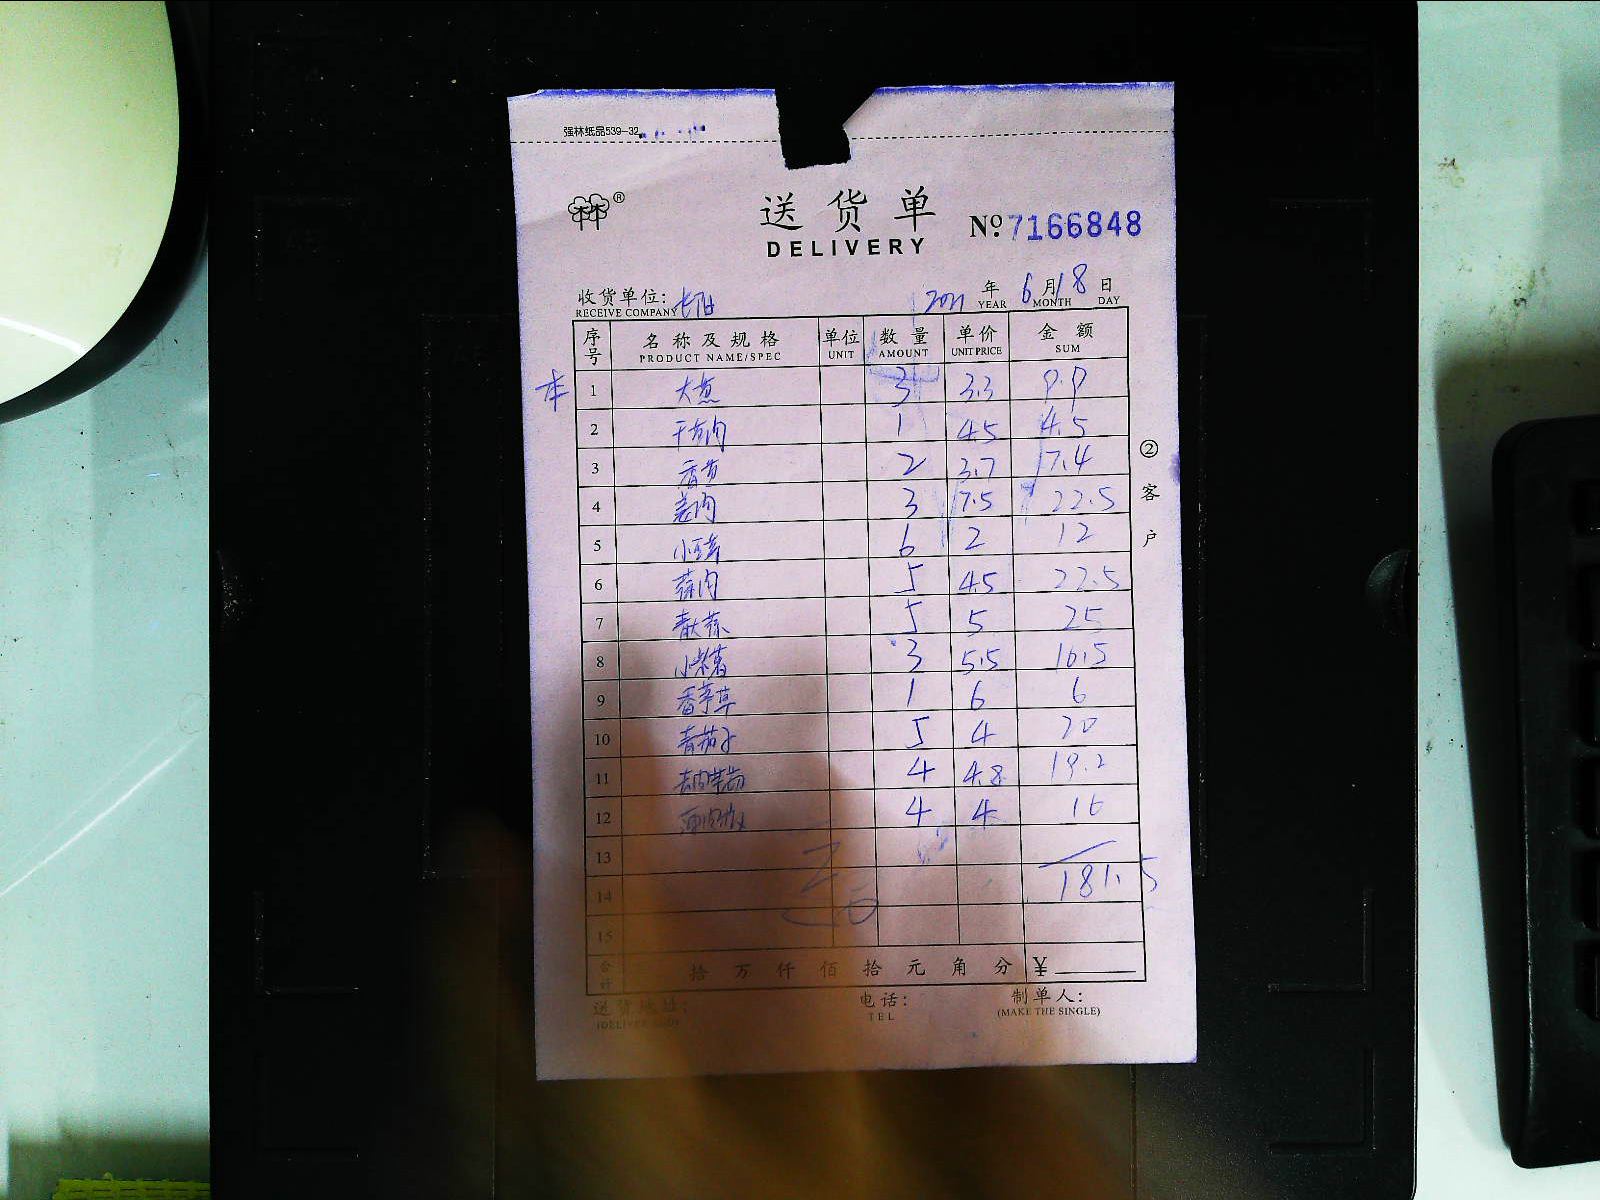 强林纸品539-32
林®
送货单
DELIVERY
No. 7166848
收货单位:
RECEIVE COMPANY
2021 年 6 月 18 日
YEAR MONTH DAY
序号 名称及规格 单位 数量 单价 金额
PRODUCT NAME/SPEC UNIT AMOUNT UNIT PRICE SUM
本 1 大葱 3 3.3 9.9
2 1 4.5 4.5
3 2 3.7 7.4
4 姜肉 3 7.5 22.5
5 6 2 12
6 蒜肉 5 4.5 22.5
7 5 5 25
8 小紫薯 3 5.5 16.5
9 香芋 1 6 6
10 青茄子 5 4 20
11 4 4.8 19.2
12 4 4 16
13
14 181.5
15
合计 拾 万 仟 佰 拾 元 角 分 ¥
②客户
送货地址: 电话: 制单人:
TEL (MAKE THE SINGLE)